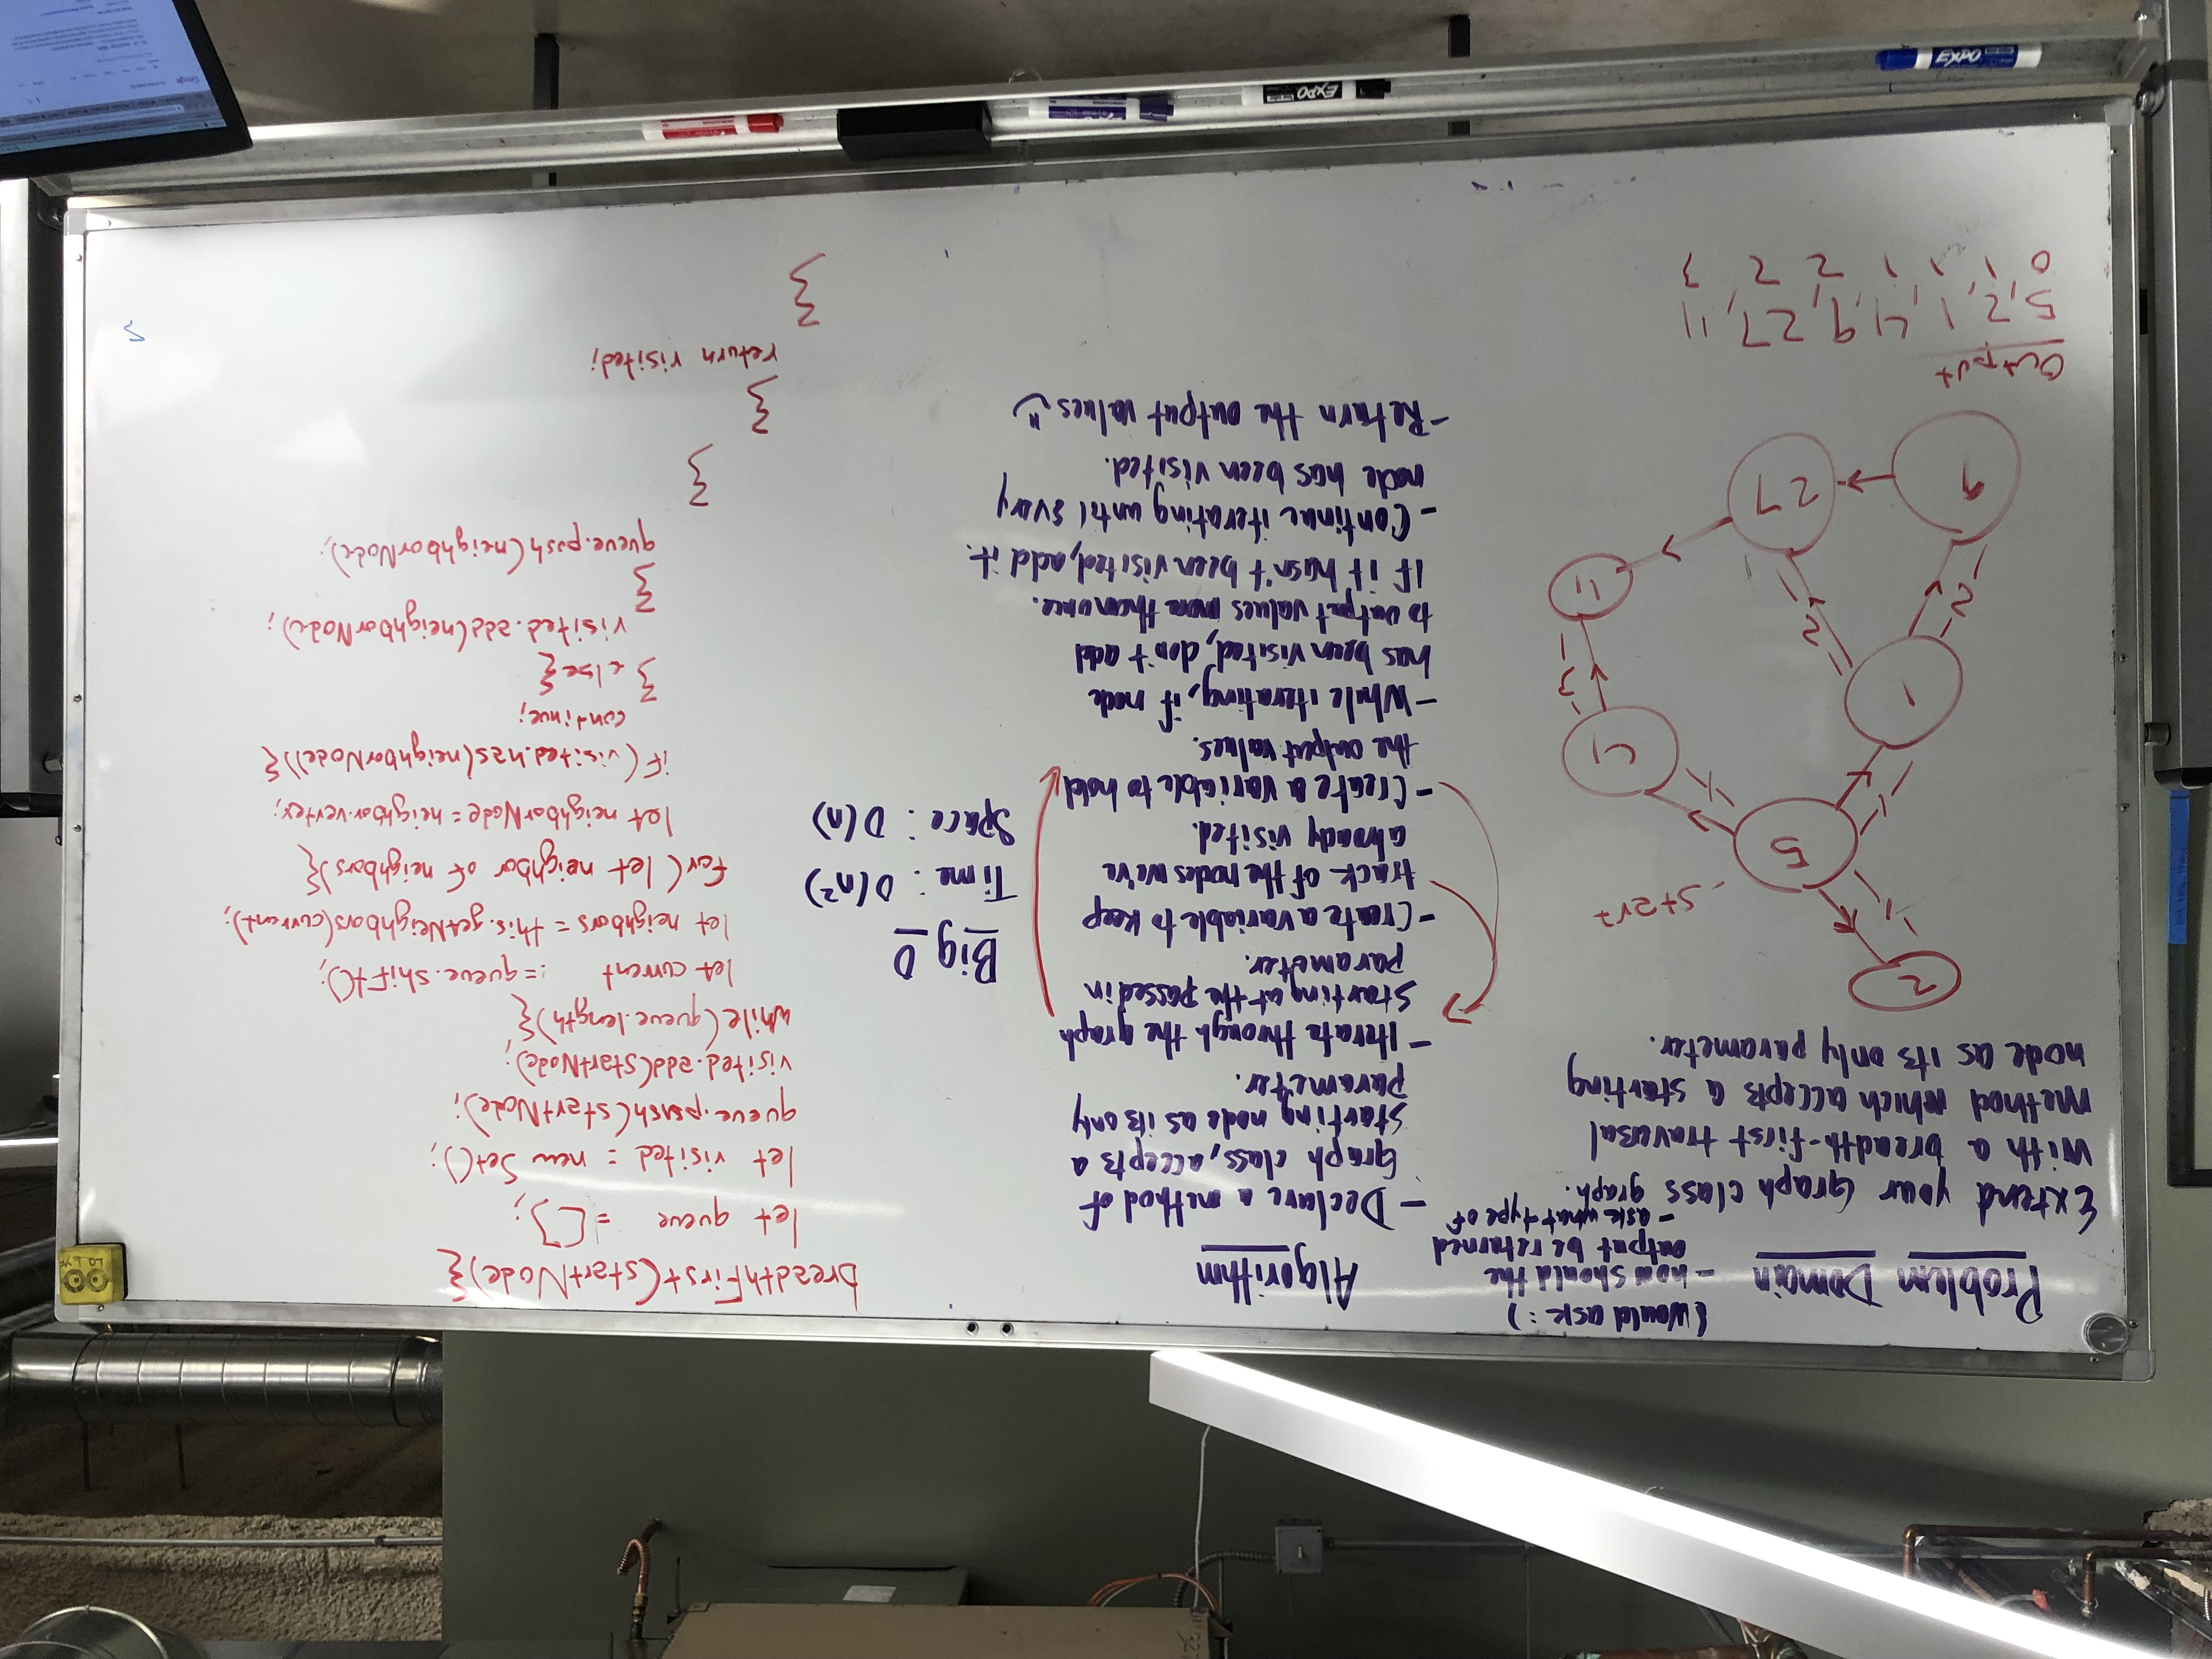 Problem Domain
(Would ask:)
- how should the
output be returned
- ask what type of
graph.
Extend your Graph class
with a breadth-first traversal
method which accepts a starting
node as its only parameter.
2
1
- start
5
1
1
4
1
3
2
2
11
9
27
Output
5, 2, 1, 4, 9, 27, 11
0 1 1 1 2 2 3
Algorithm
- Declare a method of
Graph class, accepts a
starting node as its only
parameter.
- Iterate through the graph
starting at the passed in
parameter.
- Create a variable to keep
track of the nodes we've
already visited.
- Create a variable to hold
the output values.
- While iterating, if node
has been visited, don't add
to output values more than once.
If it hasn't been visited, add it.
- Continue iterating until every
node has been visited.
- Return the output values
Big O
Time: O(n²)
Space: O(n)
breadthFirst(startNode){
let queue = [];
let visited = new Set();
queue.push(startNode);
visited.add(startNode);
while(queue.length){
let current = queue.shift();
let neighbors = this.getNeighbors(current);
for( let neighbor of neighbors){
let neighborNode = neighbor.vertex;
if(visited.has(neighborNode)){
continue;
} else{
visited.add(neighborNode);
}
queue.push(neighborNode);
}
}
return visited;
}
EXPO
EXPO
Google